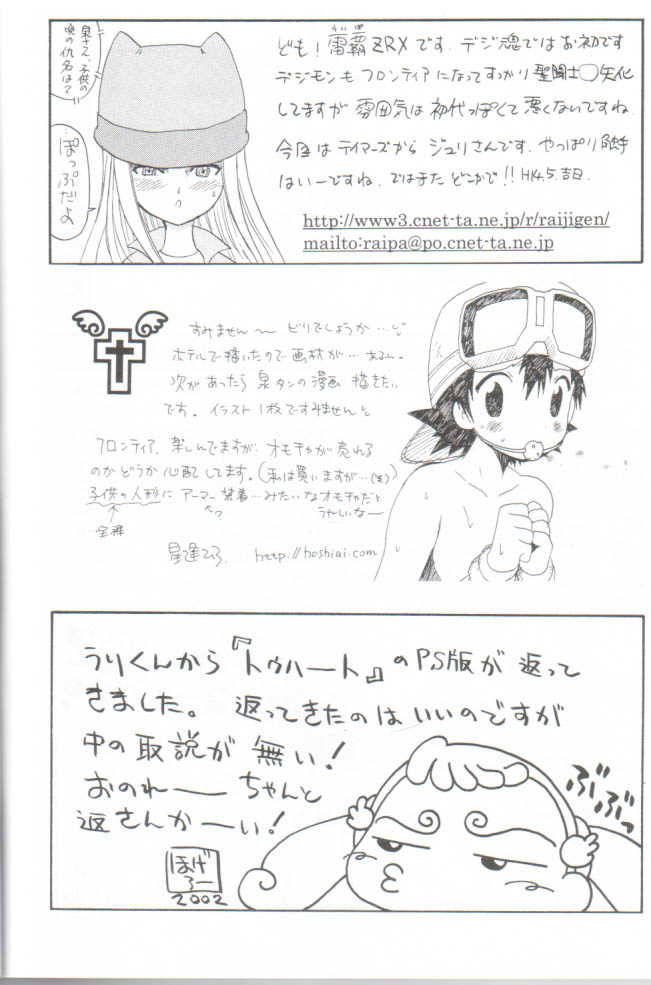 ども！雷覇ZRXです。デジ魂ではお初です
デジモンもフロンティアになってすっかり聖闘士〇矢化
してますが雰囲気は初代っぽくて悪くないですね
今回はテイマーズからジュリさんです。やっぱり
はいーですね。ではまたどこかで!!
http://www3.cnet-ta.ne.jp/r/raijigen/
mailto:raipa@po.cnet-ta.ne.jp
泉さん、子供の
頃の仇名は？
…ぽっぷだよ
すみません〜ビリでしょうか…
ホテルで描いたので画材が…
次があったら泉タンの漫画描きたい
です。イラスト1枚ですみません
フロンティア、楽しんでますがオモチャが売れる
のかどうか心配してます。(私は買いますが…(笑))
子供の人形にアーマー装着…みたいなオモチャだと
うれしいなー
↑
全裸
↑?
http://hoshiai.com
うりくんから『トゥハート』のPS版が返って
きました。返ってきたのはいいのですが
中の取説が無い！
おのれーちゃんと
返さんかーい！
ほげろー
2002
ぶぶっ